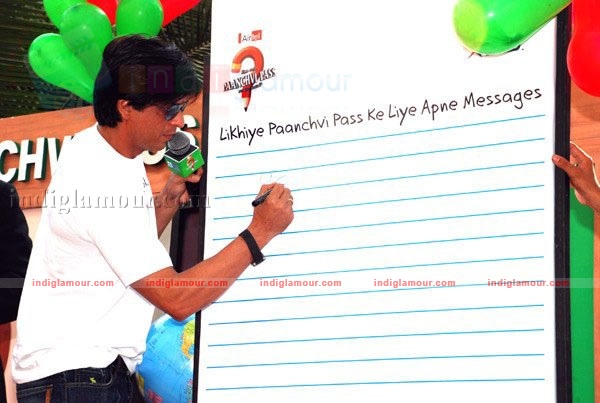 Airtel
PAANCHVI PASS
Likhiye Paanchvi Pass Ke Liye Apne Messages
CHV
indiglamour
indiglamour.com
indiglamour.com indiglamour.com indiglamour.com indiglamour.com indiglamour.com